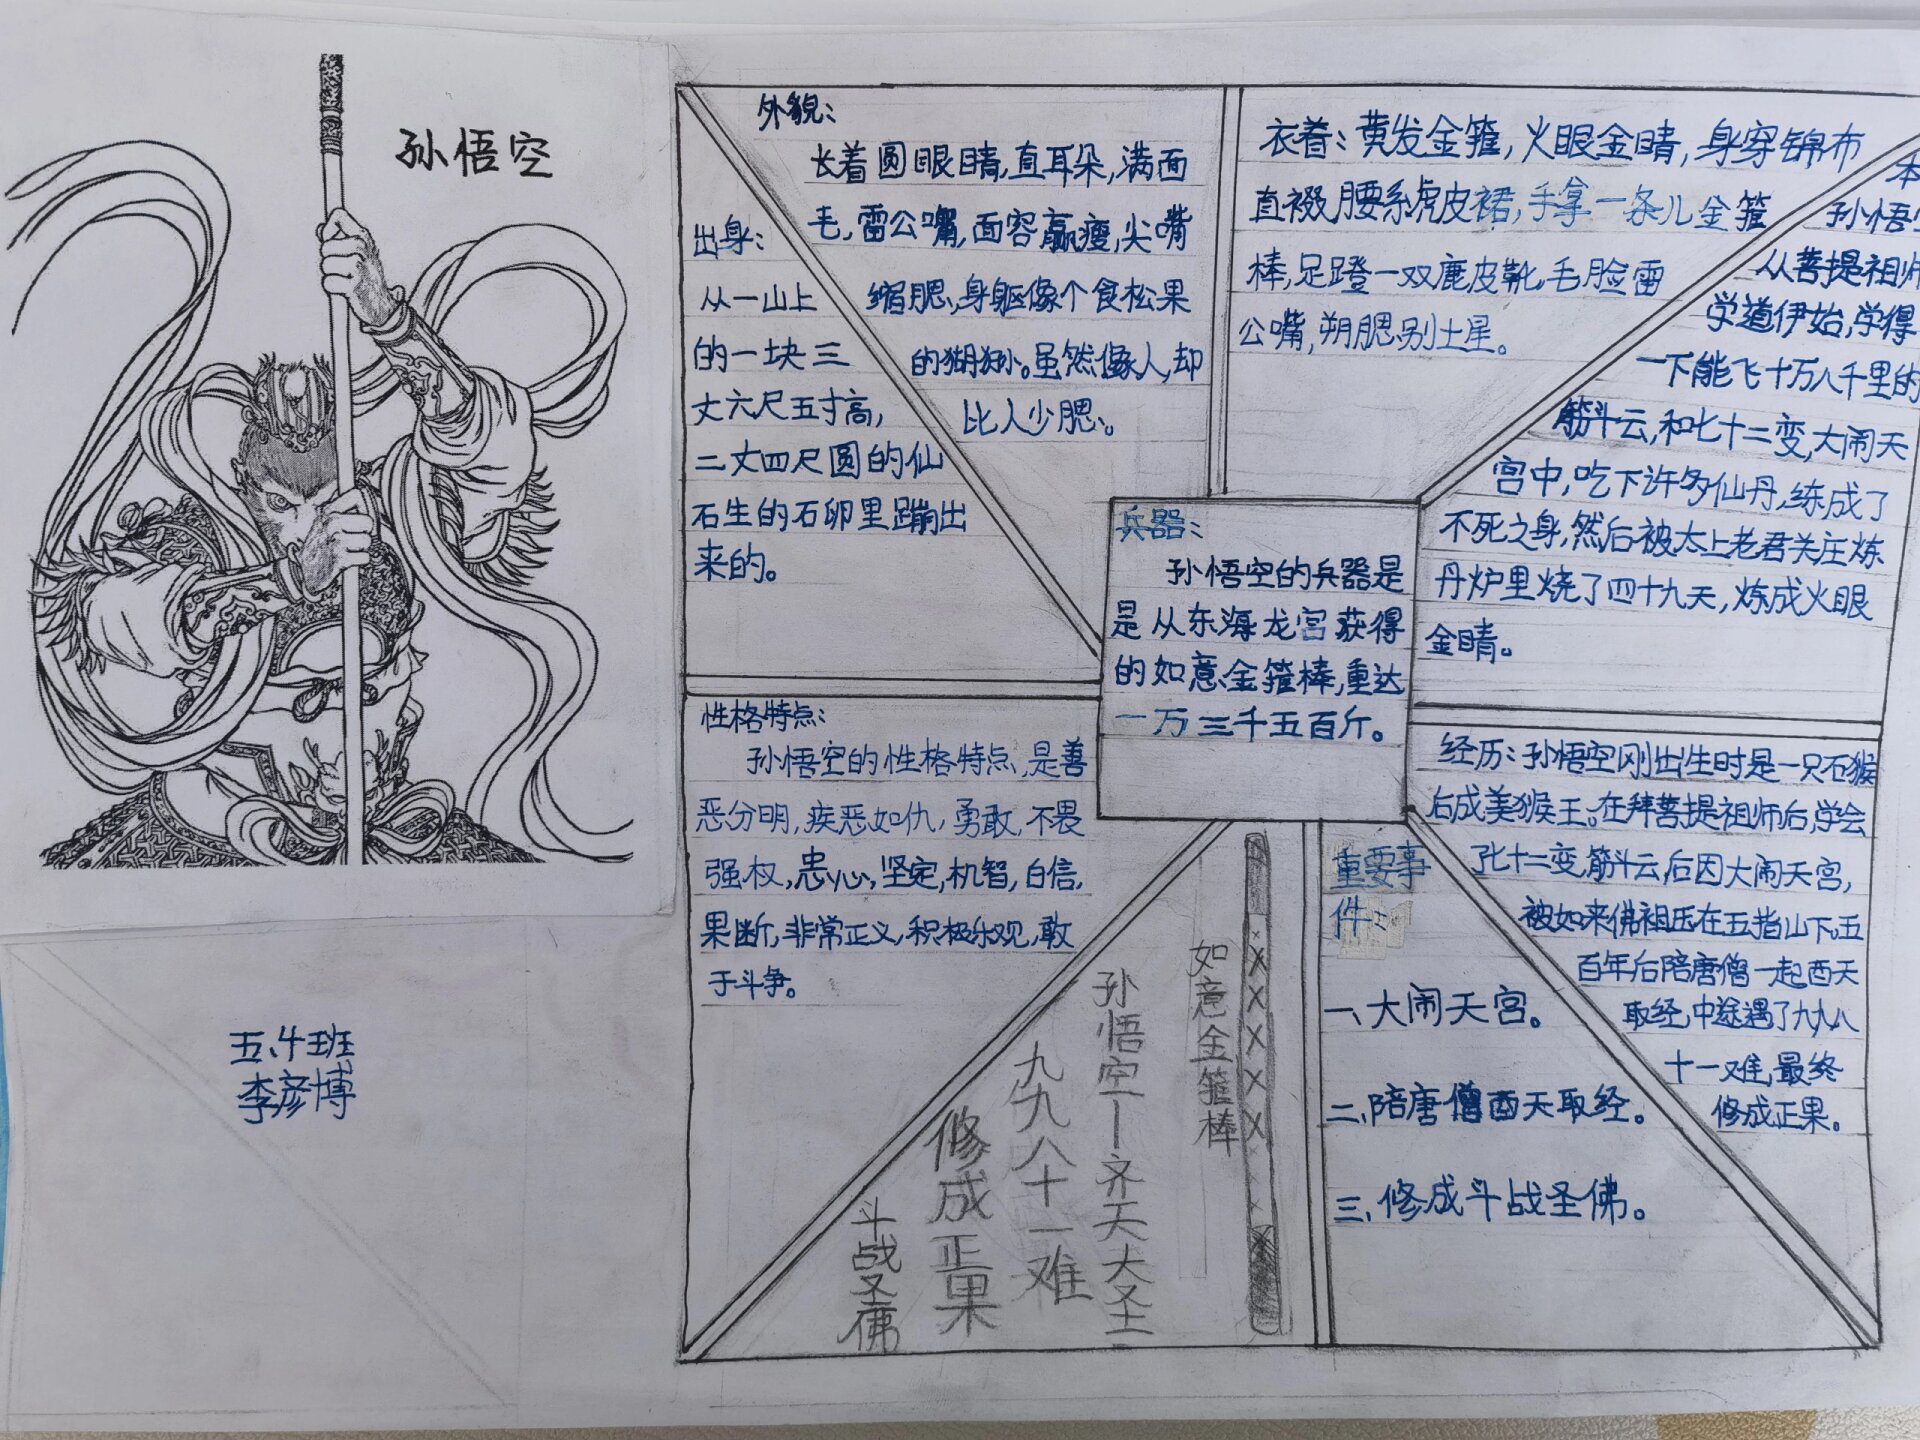 孙悟空
五.4班
李彦博
外貌：
长着圆眼睛,直耳朵,满面
毛,雷公嘴,面容羸瘦,尖嘴
缩腮,身躯像个食松果
的猢狲。虽然像人,却
比人少腮。
出身：
从一山上
的一块三
丈六尺五寸高,
二丈四尺圆的仙
石生的石卵里蹦出
来的。
衣着：黄发金箍,火眼金睛,身穿锦布
直裰,腰系虎皮裙,手拿一条儿金箍
棒,足蹬一双鹿皮靴,毛脸雷
公嘴,朔腮别土星。
本
孙悟空
从菩提祖师
学道伊始,学得
一下能飞十万八千里的
筋斗云,和七十二变,大闹天
宫中,吃下许多仙丹,练成了
不死之身,然后被太上老君关在炼
丹炉里烧了四十九天,炼成火眼
金睛。
兵器：
孙悟空的兵器是
是从东海龙宫获得
的如意金箍棒,重达
一万三千五百斤。
性格特点：
孙悟空的性格特点,是善
恶分明,疾恶如仇,勇敢,不畏
强权,忠心,坚定,机智,自信,
果断,非常正义,积极乐观,敢
于斗争。
经历：孙悟空刚出生时是一只石猴
后成美猴王。在拜菩提祖师后,学会
七十二变,筋斗云,后因大闹天宫,
被如来佛祖压在五指山下,五
百年后陪唐僧一起西天
取经,中途遇了九九八
十一难,最终
修成正果。
重要事
件：
一、大闹天宫。
二、陪唐僧西天取经。
三、修成斗战圣佛。
如意金箍棒
孙悟空—齐天大圣
九九八十一难
修成正果
斗战圣佛